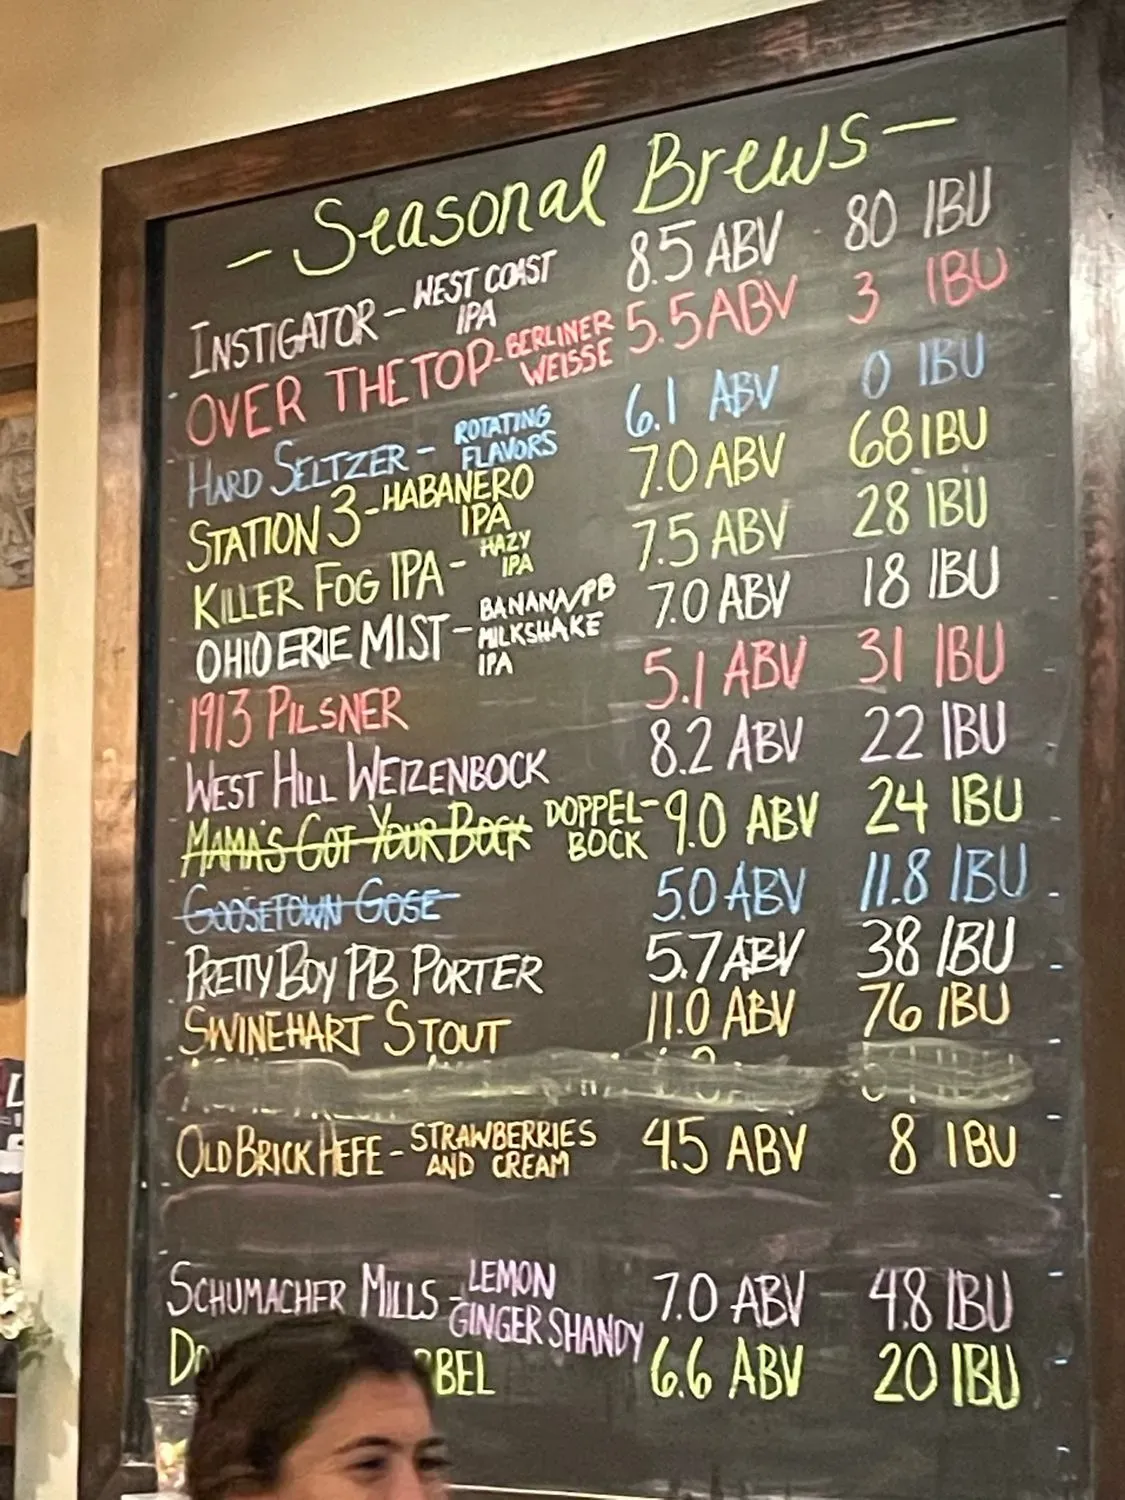 - Seasonal Brews -
INSTIGATOR - WEST COAST IPA 8.5 ABV 80 IBU
OVER THE TOP - BERLINER WEISSE 5.5 ABV 3 IBU
HARD SELTZER - ROTATING FLAVORS 6.1 ABV 0 IBU
STATION 3 - HABANERO IPA 7.0 ABV 68 IBU
KILLER FOG IPA - HAZY IPA 7.5 ABV 28 IBU
OHIO ERIE MIST - BANANA/PB MILKSHAKE IPA 7.0 ABV 18 IBU
1913 PILSNER 5.1 ABV 31 IBU
WEST HILL WEIZENBOCK 8.2 ABV 22 IBU
MAMA'S GOT YOUR BOCK DOPPEL-BOCK 9.0 ABV 24 IBU
GOOSETOWN GOSE 5.0 ABV 11.8 IBU
PRETTY BOY PB PORTER 5.7 ABV 38 IBU
SWINEHART STOUT 11.0 ABV 76 IBU
OLD BRICK HEFE - STRAWBERRIES AND CREAM 4.5 ABV 8 IBU
SCHUMACHER MILLS - LEMON GINGER SHANDY 7.0 ABV 4.8 IBU
BEL 6.6 ABV 20 IBU